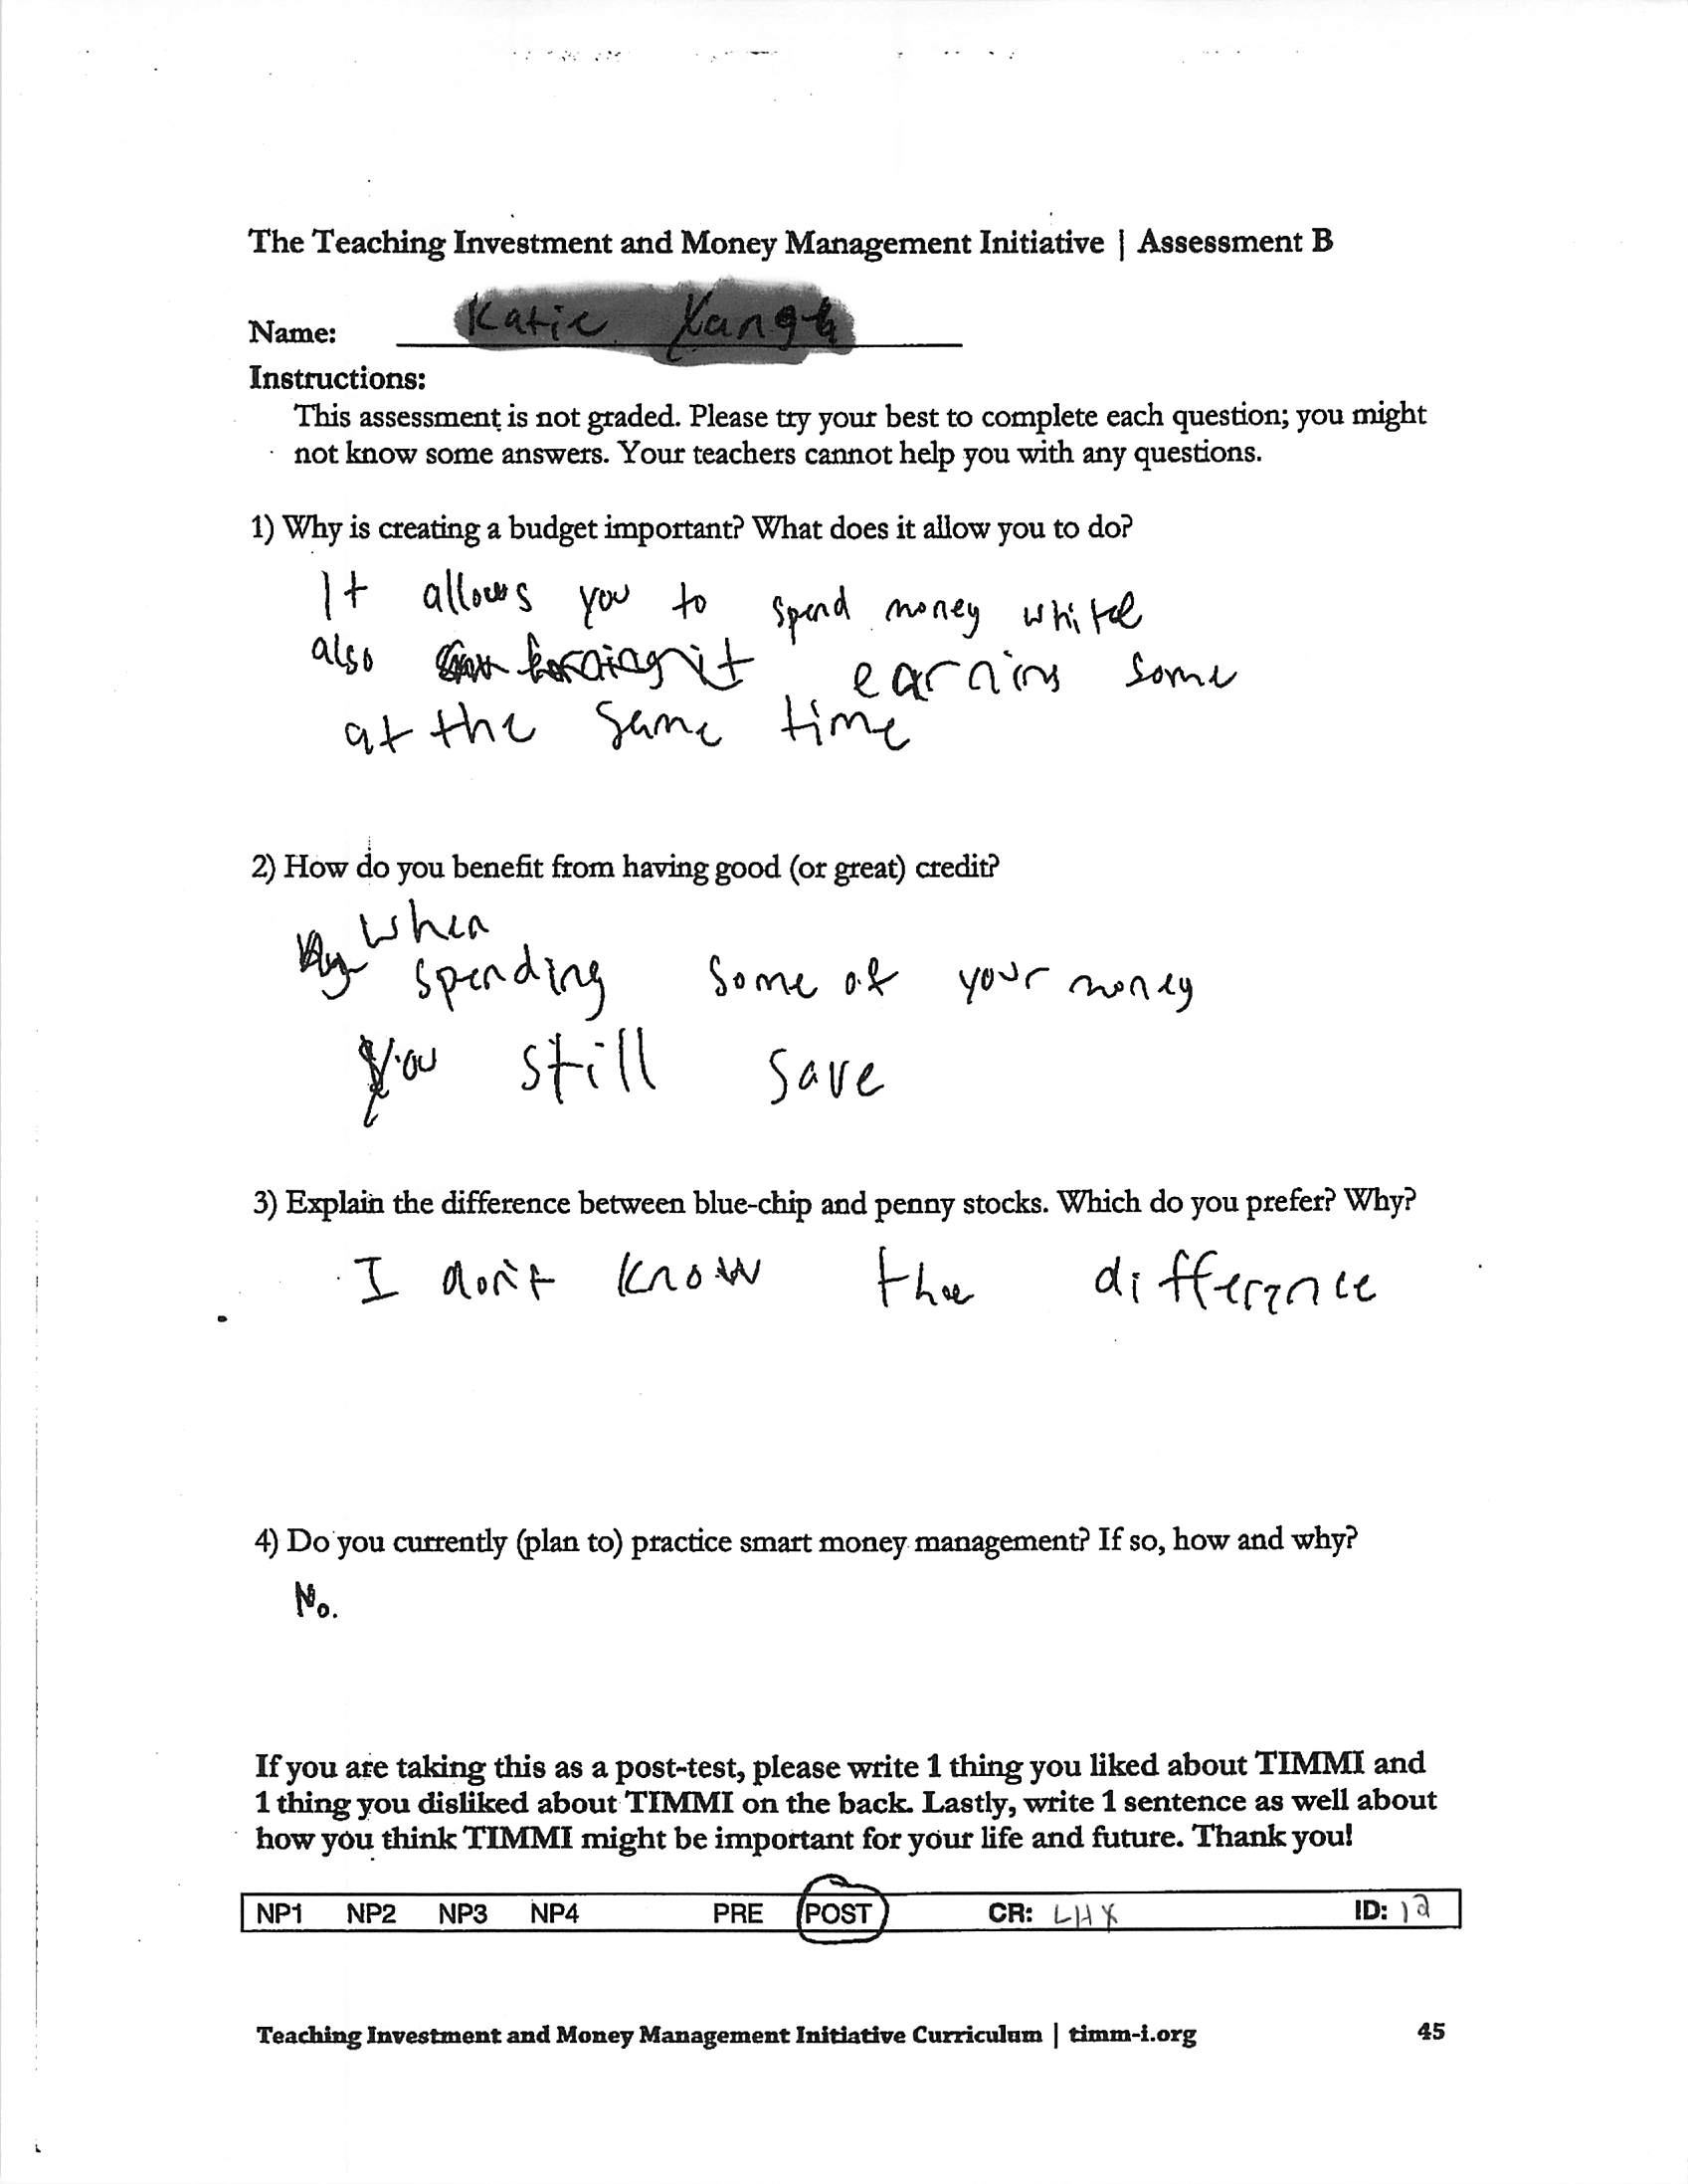 The Teaching Investment and Money Management Initiative | Assessment B
Name:
Instructions:
This assessment is not graded. Please try your best to complete each question; you might
not know some answers. Your teachers cannot help you with any questions.
1) Why is creating a budget important? What does it allow you to do?
It allows you to spend money while
also earning some
at the same time
2) How do you benefit from having good (or great) credit?
when
spending some of your money
you still save
3) Explain the difference between blue-chip and penny stocks. Which do you prefer? Why?
I don't know the difference
4) Do you currently (plan to) practice smart money management? If so, how and why?
No.
If you are taking this as a post-test, please write 1 thing you liked about TIMMI and
1 thing you disliked about TIMMI on the back. Lastly, write 1 sentence as well about
how you think TIMMI might be important for your life and future. Thank you!
NP1 NP2 NP3 NP4 PRE POST CR: LHX ID: 12
Teaching Investment and Money Management Initiative Curriculum | timm-i.org 45